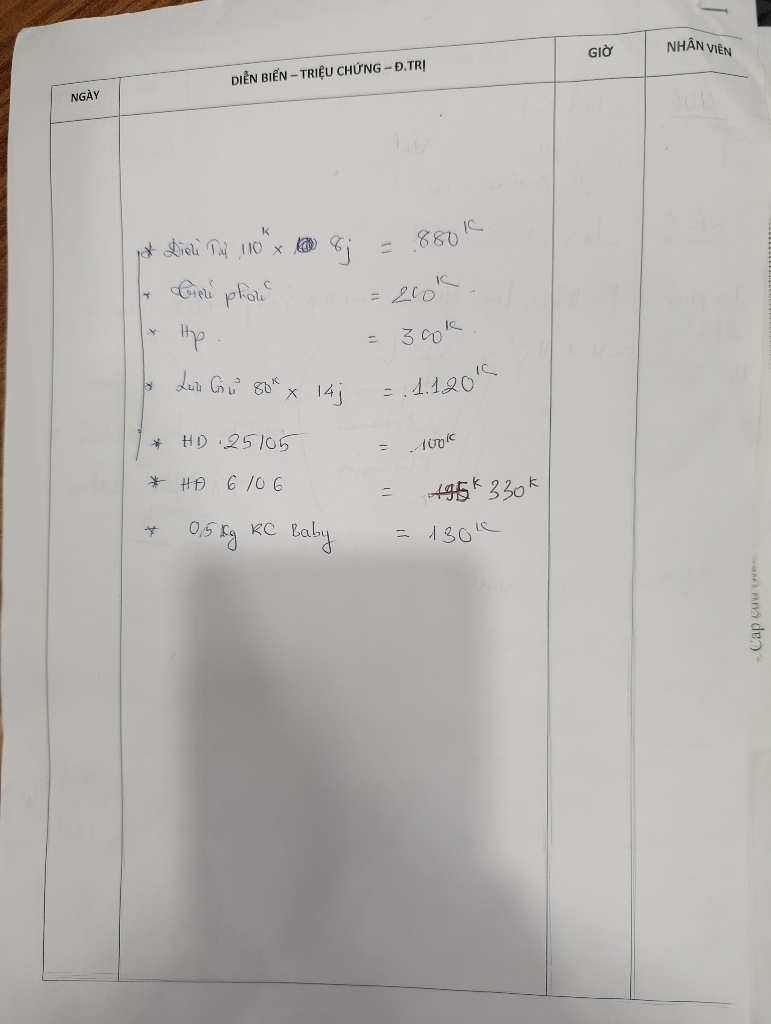 NGÀY DIỄN BIẾN – TRIỆU CHỨNG – Đ.TRỊ GIỜ NHÂN VIÊN
* Điều Trị 110K x 8j = 880K
* phẫu = 200K
* Hp. = 300K
* Lưu Giữ 80K x 14j = 1.120K
* HD 25/05 = 100K
* HĐ 6/06 = 195K 330K
* 0,5 Kg RC Baby = 130K